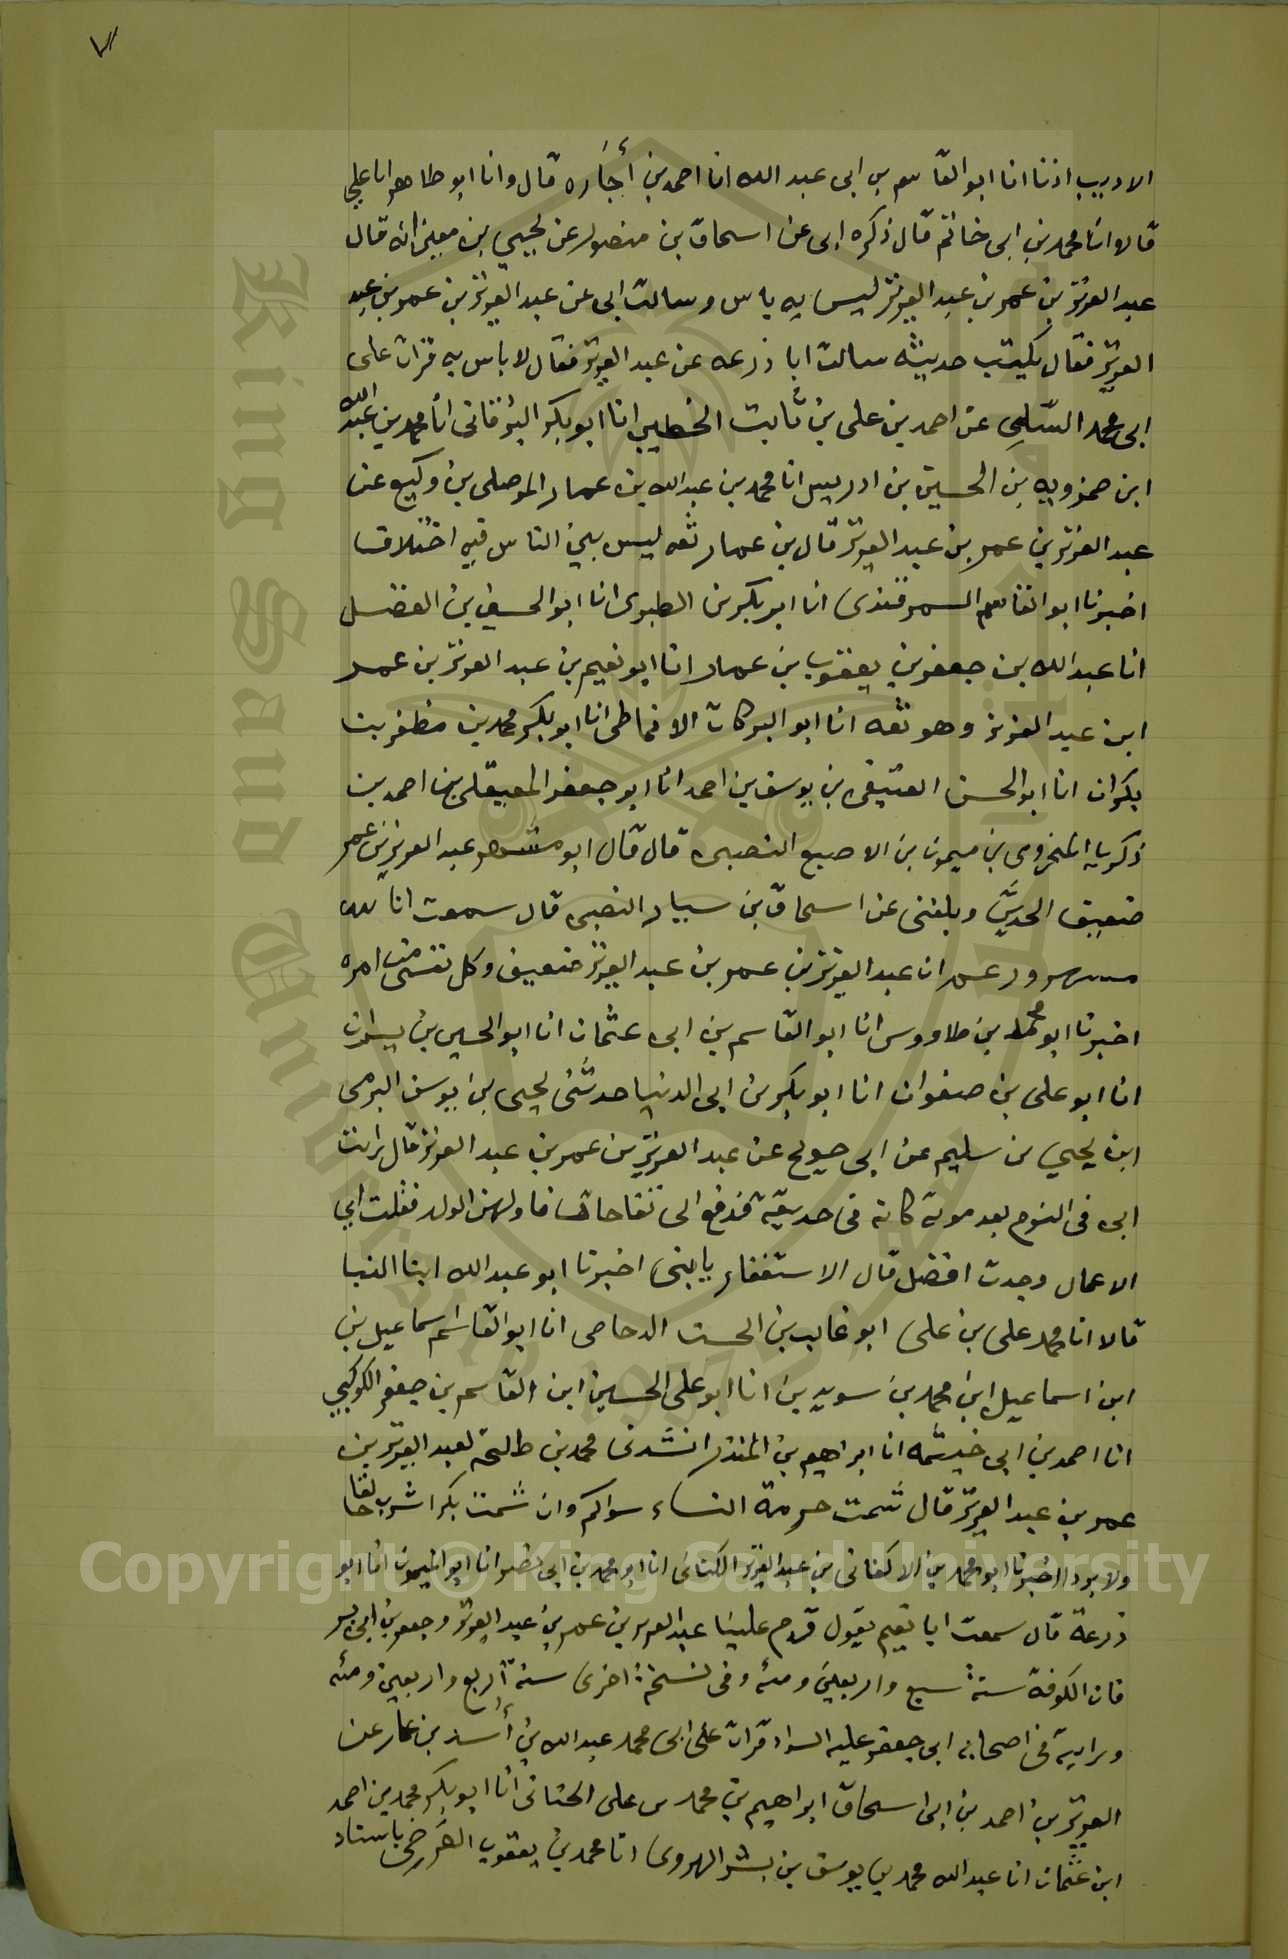 ٧
الاديب اذنا انا ابو القاسم بن ابى عبد الله انا احمد بن أجَازه قال وانا ابو طاهر انا علي
قالا انا محمد بن ابى خاتم قال ذكره ابى عن اسحاق بن منصور عن يحيي بن معين انه قال
عبد العزيز بن عمر بن عبد العزيز ليس به باس وسالت ابى عن عبد العزيز بن عمر بن عبد
العزيز فقال يكتب حديثه سالت ابا زرعه عن عبد العزيز فقال لا باس به قرات على
ابى محمد السّلمى عن احمد بن على بن ثابت الخطيب انا ابو بكر البرقانى انا محمد بن عبد الله
ابن حمزويه بن الحسين بن ادريس انا محمد بن عبد الله بن عمار الموصلى بن وكيع عن
عبد العزيز بن عمر بن عبد العزيز قال بن عمار ثقه ليس بين الناس فيه اختلافا
اخبرنا ابو القاسم السمرقندى انا ابو بكر بن الطبرى انا ابو الحسين بن الفضل
انا عبد الله بن جعفر بن يعقوب بن عمار انا ابو نعيم بن عبد العزيز بن عمر
ابن عبد العزيز وهو ثقه انا ابو البركات الانماطى انا ابو بكر محمد بن مظفر بن
بكران انا ابو الحسن العتيقى بن يوسف بن احمد انا ابو جعفر العقيلى بن احمد بن
زكريا المخزومى بن ميمون بن الاصبع النصبى قال قال ابو مسهر عبد العزيز بن عمر
ضعيف الحديث وبلغنى عن اسحاق بن سيار النصبى قال سمعت انا
مسهر وزعم ان عبد العزيز بن عمر بن عبد العزيز ضعيف وكل نفسى من امره
اخبرنا ابو محمد بن طاووس انا ابو القاسم بن ابى عثمان انا ابو الحسين بن بشران
انا ابو على بن صفوان انا ابو بكر بن ابى الدنيا حدثنى يحيى بن يوسف البرمى
ابن يحيي بن سليم عن ابى صيوح عن عبد العزيز بن عمر بن عبد العزيز قال رايت
ابى فى النوم بعد موته كانه فى حديقة فدفع الى تفاحات فاولهن الولد فقلت اي
الاعمال وجدت افضل قال الاستغفار يابنى اخبرنا ابو عبد الله ابنا البنا
قالا انا محمد على بن على ابو غالب بن الحسن الدحاصى انا ابو القاسم اسماعيل بن
ابن اسماعيل ابن محمد بن سويد بن انا ابو على الحسين ابن القاسم بن جعفر الكوكبي
انا احمد بن ابى خيثمه انا ابراهيم بن المنذر انشدنى محمد بن طلحة لعبد العزيز بن
عمر بن عبد العزيز قال شمت حرمة النساء سواكم وان شمت بكرا شرب نقاخا
ولا بردا اخبرنا ابو محمد بن الاكفانى بن عبد العزيز الكنانى انا ابو محمد بن ابى نصر انا ابو الميمون انا ابو
زرعة قال سمعت ابا نعيم يقول قدم علينا عبد العزيز بن عمر بن عبد العزيز وجعفر بن ابى بسر
قان الكوفة سنة سبع واربعين ومئه وفى نسخة اخرى سنة أربع واربعين ومئه
ورايته فى اصحابه ابى جعفر عليه السواد قرات على ابى محمد عبد الله بن أسد بن عمار عن
العزيز بن احمد بن ابى اسحاق ابراهيم بن محمد بن على الحنانى انا ابو بكر محمد بن احمد
ابن عثمان انا عبد الله محمد بن يوسف بن بشر الهروى انا محمد بن يعقوب الفَرَضى باسناد
Copyright © King Saud University
King Saud University